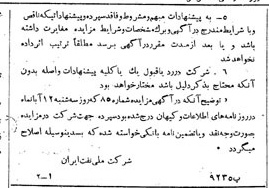 ۵- به پیشنهادات مبهم و مشروط و فاقد سپرده و پیشنهاداتیکه ناقص
و با شرایط مندرج در آگهی و برگ مشخصات و شرایط مزایده مغایرت داشته
باشد و یا بعد از مدت مقرر در آگهی برسد مطلقاً ترتیب اثر داده
نخواهد شد
۶- شرکت در رد یا قبول یک یا کلیه پیشنهادات واصله بدون
آنکه محتاج بذکر دلیل باشد مختار خواهد بود
* توضیح آنکه در آگهی مزایده شماره ۸۵ که روز سه شنبه ۱۲ آبانماه
در روزنامه های اطلاعات و کیهان درج شده بود سپرده جهت شرکت در مزایده
بصورت وجه نقد و یا تضمین نامه بانکی خواسته شده که بدینوسیله اصلاح
میگردد
شرکت ملی نفت ایران
۹۲۳۵پ
۲-۱